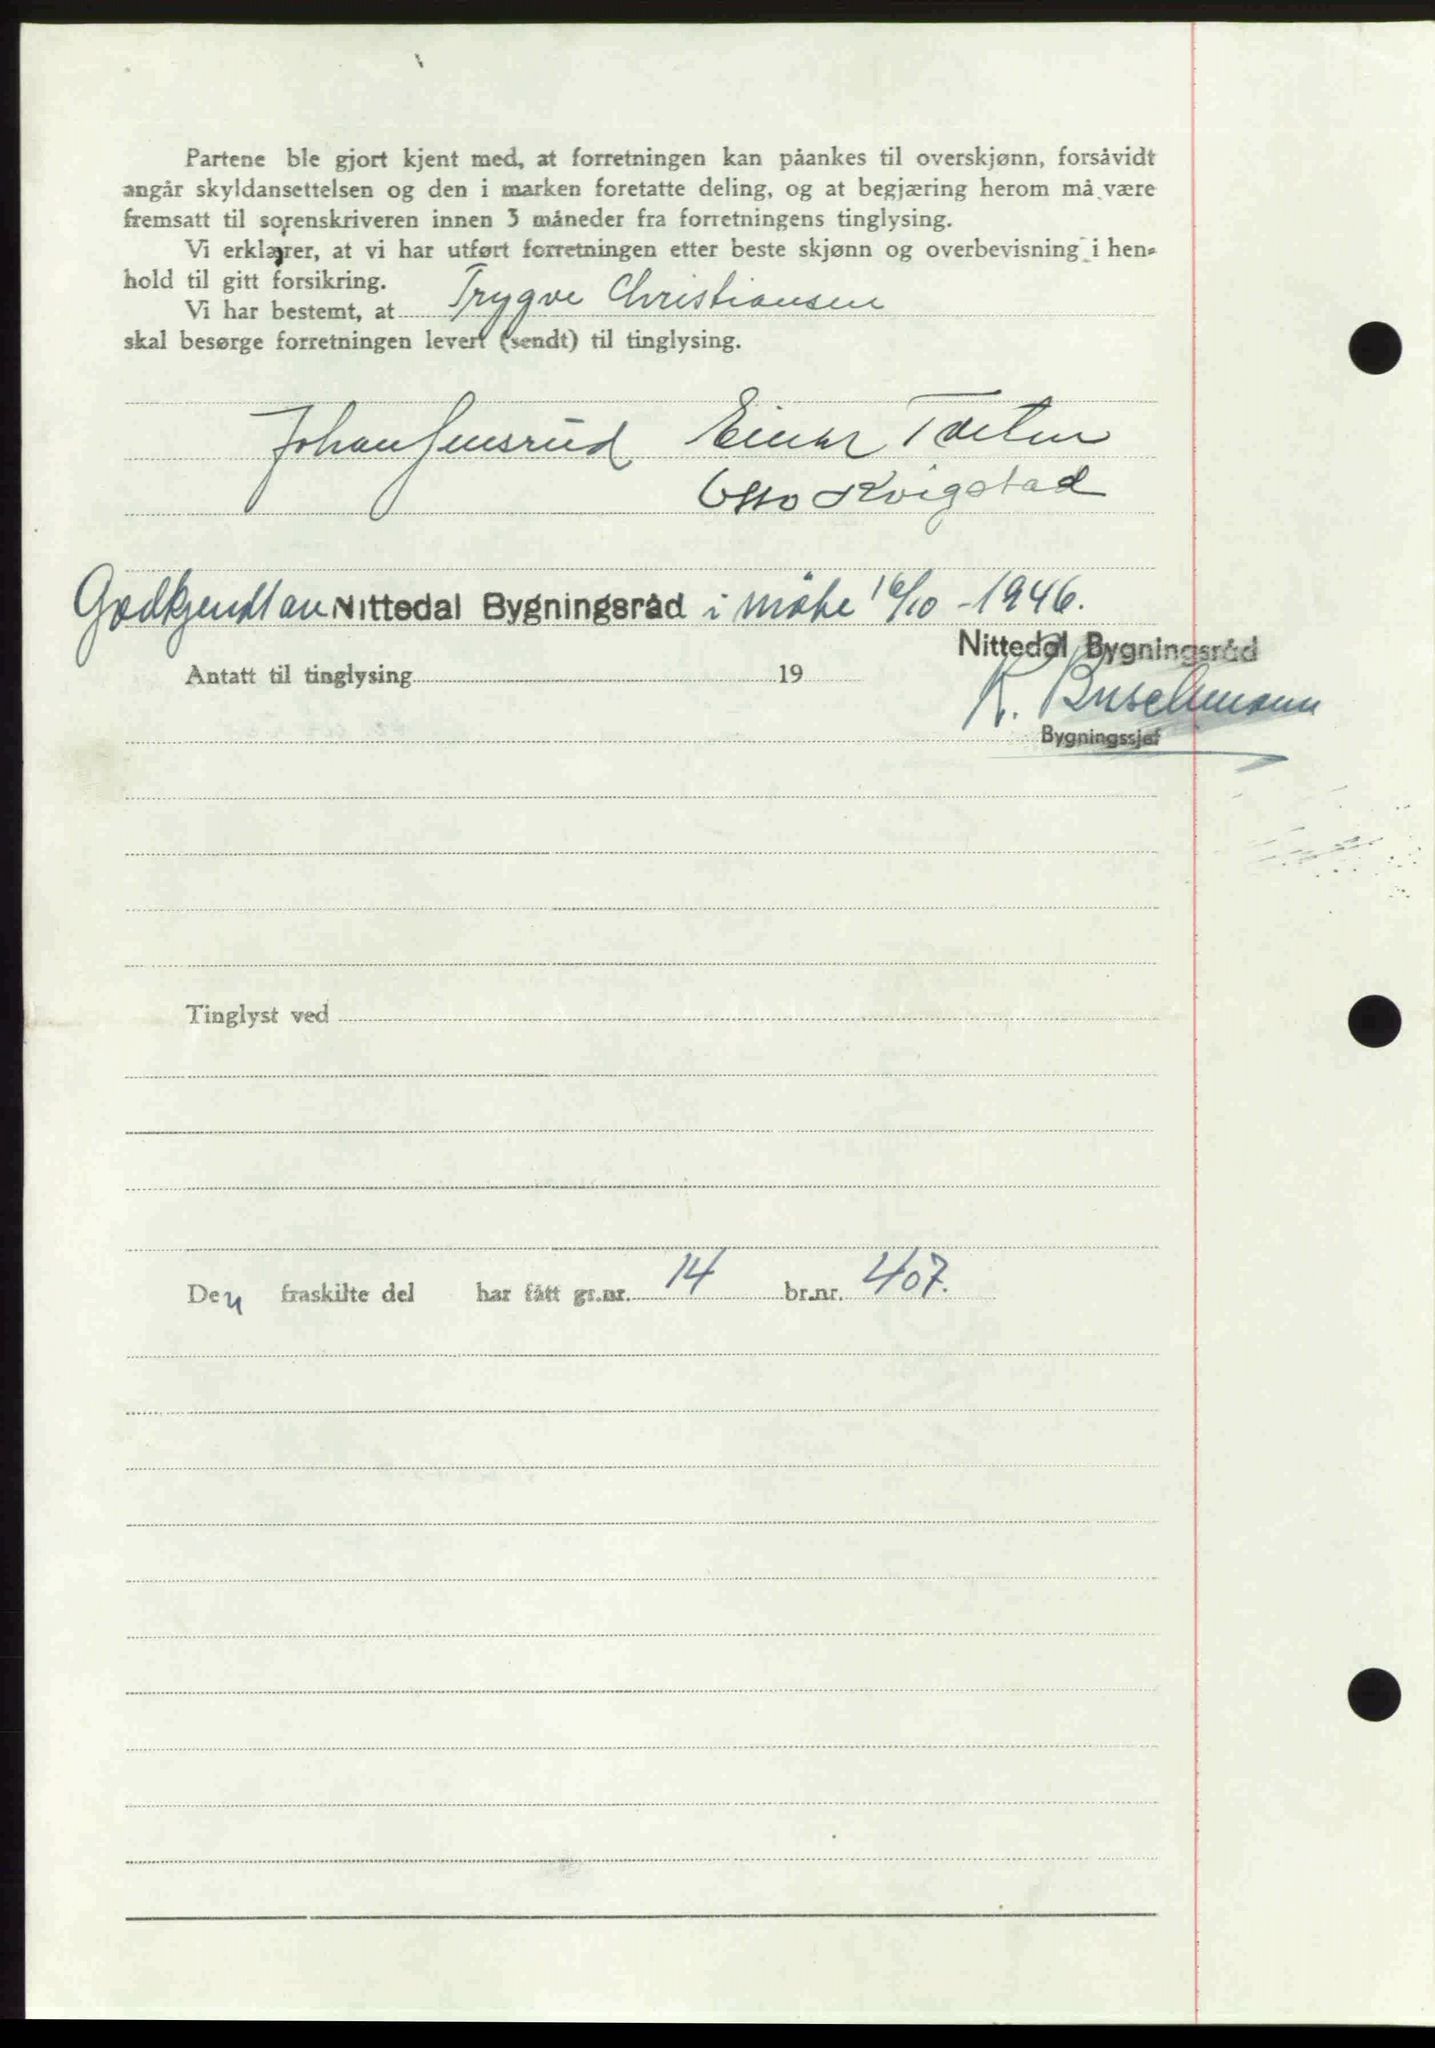 Partene ble gjort kjent med, at forretningen kan påankes til overskjønn, forsåvidt
angår skyldansettelsen og den i marken foretatte deling, og at begjæring herom må være
fremsatt til sorenskriveren innen 3 måneder fra forretningens tinglysing.
Vi erklærer, at vi har utført forretningen etter beste skjønn og overbevisning i hen-
hold til gitt forsikring.
Vi har bestemt, at Trygve Christiansen
skal besørge forretningen levert (sendt) til tinglysing.
Johan Jensrud Einar Tøften
Otto Kvigstad
Godkjendt av Nittedal Bygningsråd i møte 16/10 - 1946.
Nittedal Bygningsråd
Antatt til tinglysing 19
K. Buschmann
Bygningssjef
Tinglyst ved
Den fraskilte del har fått gr.nr. 14 br.nr. 407.